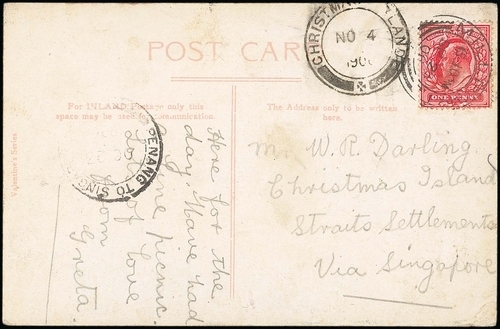 POST CAR
For INLAND Postage only this
space may be used for communication.
The Address only to be written
here.
Here for the
day. Have had
picnic.
Love
from
Greta.
Mr W. R. Darling.
Christmas Island
Straits Settlements
Via Singapore
CHRISTMAS ISLAND
NO 4
190
PENANG TO SING
ONE PENNY